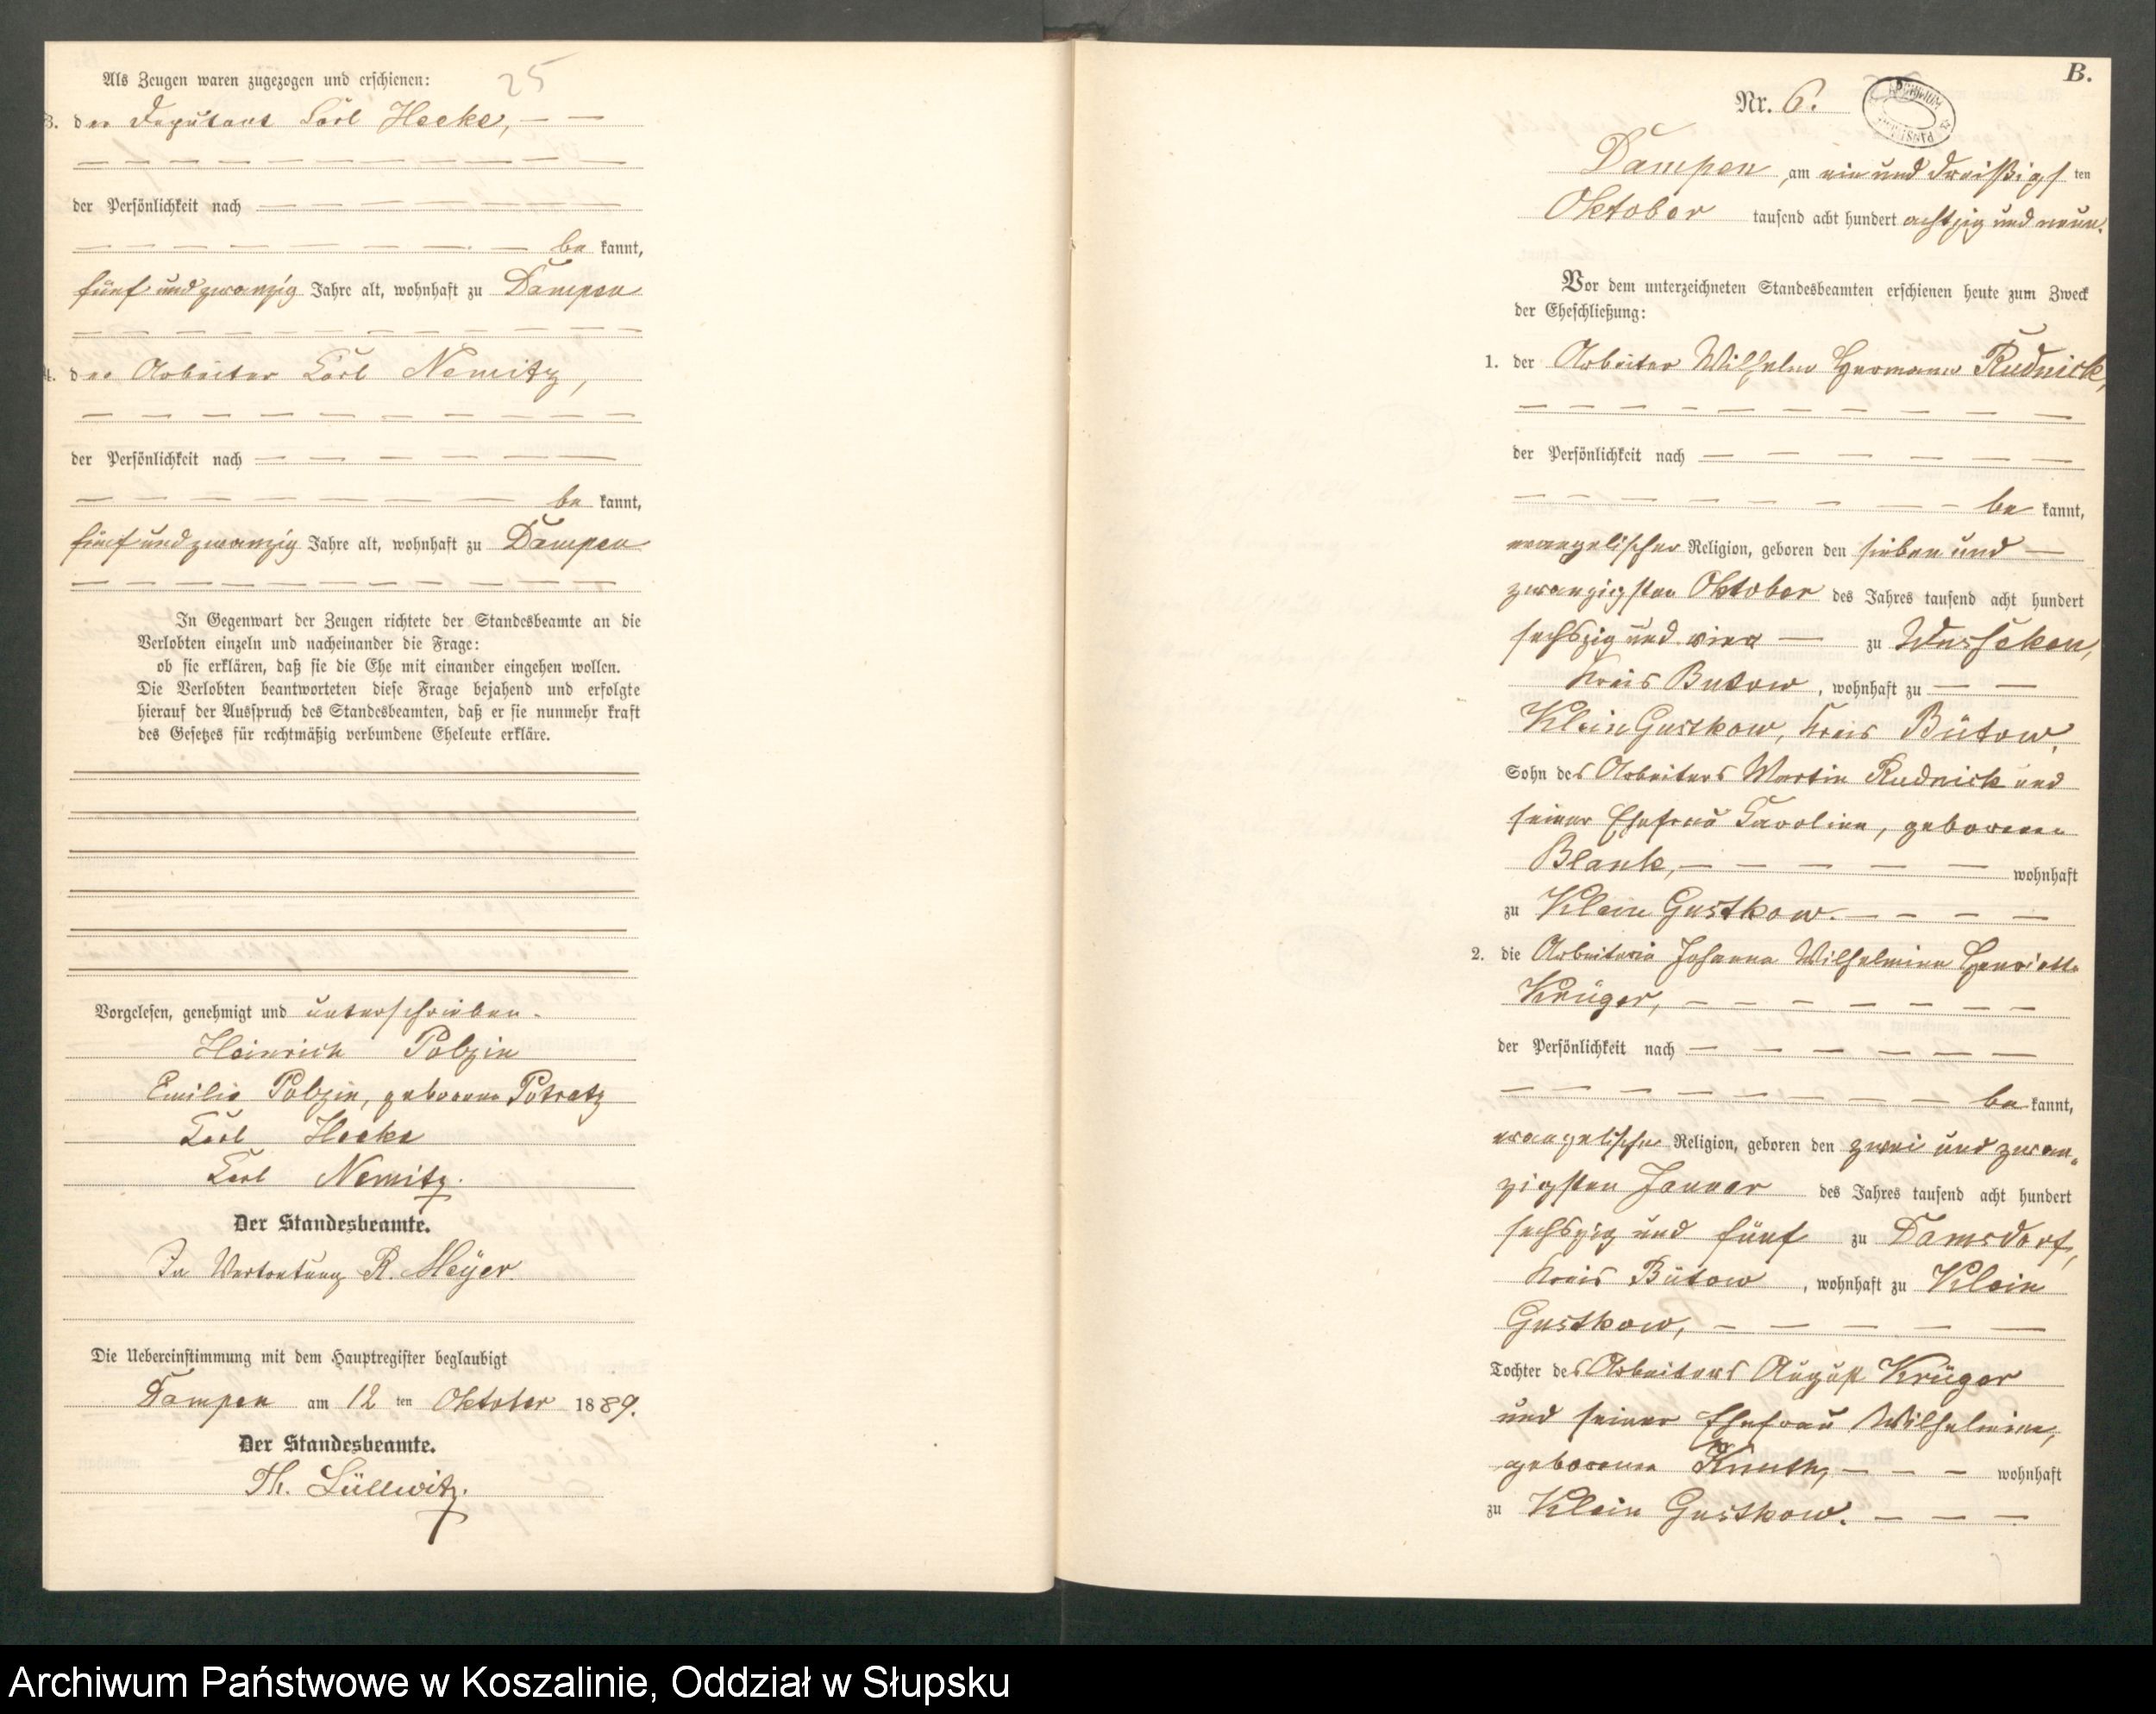 25
Als Zeugen waren zugezogen und erschienen:
3. der Deputant Carl Hecke, — —
der Persönlichkeit nach — — — —
— — — — be kannt,
fünf und zwanzig Jahre alt, wohnhaft zu Dampen
4. der Arbeiter Carl Nemitz,
der Persönlichkeit nach — — — —
— — — — be kannt,
fünf und zwanzig Jahre alt, wohnhaft zu Dampen
In Gegenwart der Zeugen richtete der Standesbeamte an die
Verlobten einzeln und nacheinander die Frage:
ob sie erklären, daß sie die Ehe mit einander eingehen wollen.
Die Verlobten beantworteten diese Frage bejahend und erfolgte
hierauf der Ausspruch des Standesbeamten, daß er sie nunmehr kraft
des Gesetzes für rechtmäßig verbundene Eheleute erkläre.
Vorgelesen, genehmigt und unterschrieben.
Heinrich Polzin
Emilie Polzin, geborene Potratz
Carl Hecke
Carl Nemitz.
Der Standesbeamte.
In Vertretung R. Meÿer.
Die Uebereinstimmung mit dem Hauptregister beglaubigt
Dampen am 12 ten Oktober 1889.
Der Standesbeamte.
Th. Lüllwitz.
B.
Nr. 6.
ARCHIWUM PAŃSTW
Dampen, am ein und dreißigs ten
Oktober tausend acht hundert achtzig und neun.
Vor dem unterzeichneten Standesbeamten erschienen heute zum Zweck
der Eheschließung:
1. der Arbeiter Wilhelm Hermann Rudnick,
der Persönlichkeit nach — — — —
— — — — be kannt,
evangelischer Religion, geboren den sieben und —
zwanzigsten Oktober des Jahres tausend acht hundert
sechszig und vier — zu Wusseken,
Kreis Butow, wohnhaft zu — —
Klein Gustkow, Kreis Bütow,
Sohn des Arbeiters Martin Rudnick und
seiner Ehefrau Caroline, geborene
Blank, — — — — wohnhaft
zu Klein Gustkow. — — — —
2. die Arbeiterin Johanna Wilhelmine Henriette
Krüger, — — — —
der Persönlichkeit nach — — — —
— — — — be kannt,
evangelischer Religion, geboren den zwei und zwan-
zigsten Januar des Jahres tausend acht hundert
sechszig und fünf zu Damsdorf,
Kreis Bütow, wohnhaft zu Klein
Gustkow, — — — —
Tochter des Arbeiters August Krüger
und seiner Ehefrau Wilhelmine,
geborene Knuth, — — — wohnhaft
zu Klein Gustkow. — — —
Archiwum Państwowe w Koszalinie, Oddział w Słupsku